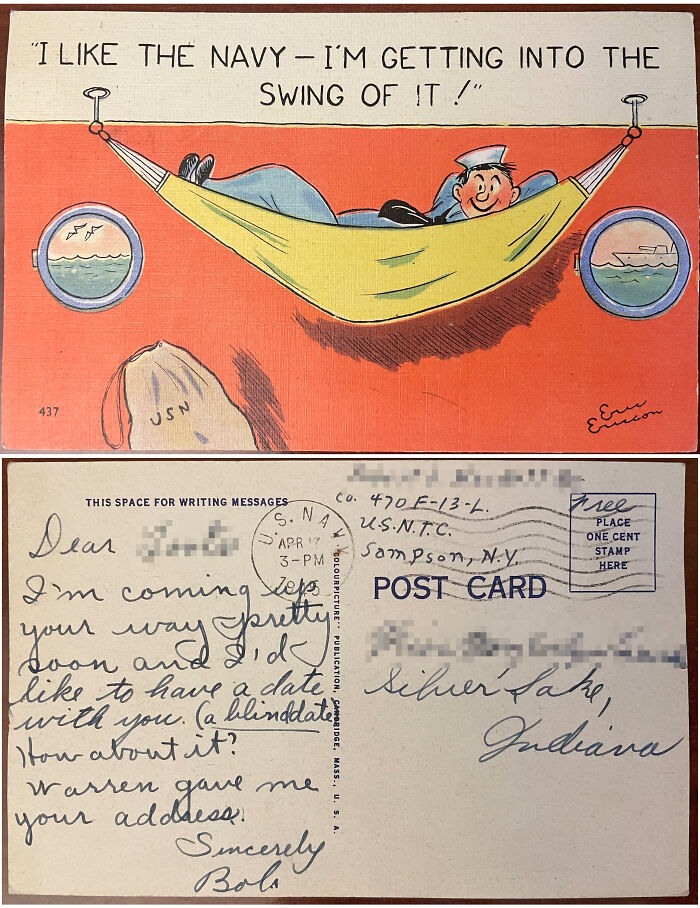 "I LIKE THE NAVY — I'M GETTING INTO THE
SWING OF IT!"
USN
437
Eric
Ericson
THIS SPACE FOR WRITING MESSAGES
Dear
I'm coming up
your way pretty
soon and I'd
like to have a date
with you. (a blind date)
How about it?
Warren gave me
your address.
Sincerely
Bob
U.S. NAVY
APR 17
3-PM
"COLOURPICTURE" PUBLICATION, CAMBRIDGE, MASS., U. S. A.
Co. 470 F-13-L.
U.S.N.T.C.
Sampson, N.Y.
Free
PLACE
ONE CENT
STAMP
HERE
POST CARD
Silver Lake,
Indiana